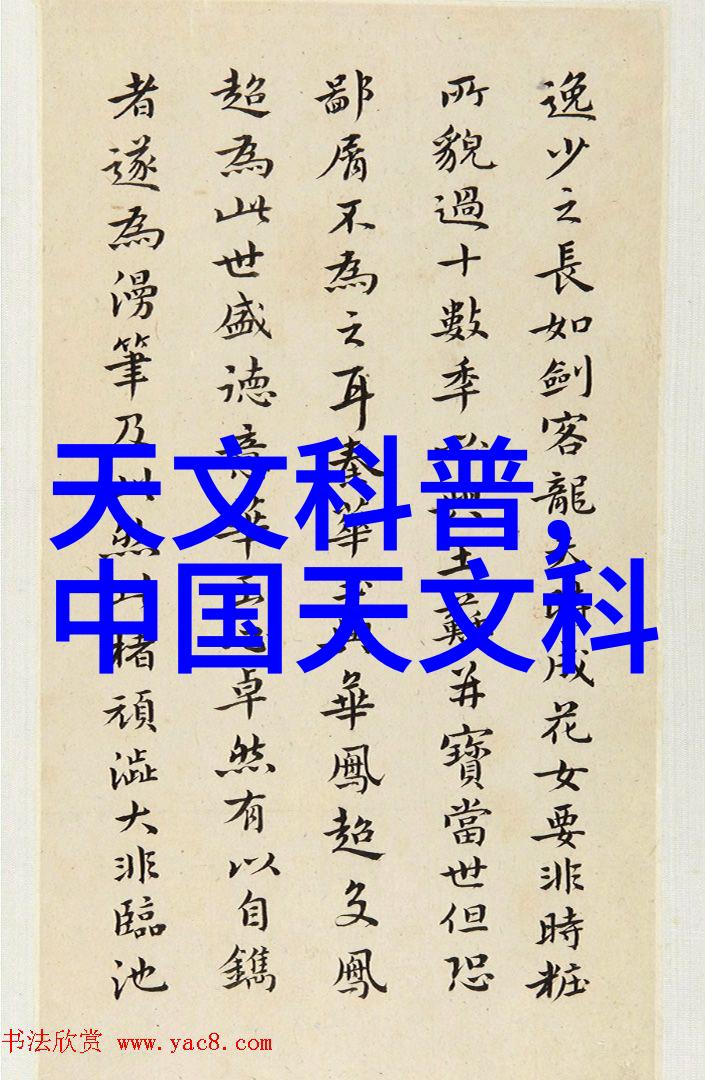 逸少之長如劍客龍成花女要非時粧
所貌過十數季士蘓并寶當世但恐
鄙屑不為之耳華華鳳超鳳
超為此世盛德華卓然有以自鐫
者遂為漫筆乃然楮頑澁大非臨池
天文科普,
中国天文科
书法欣赏 www.yac8.com